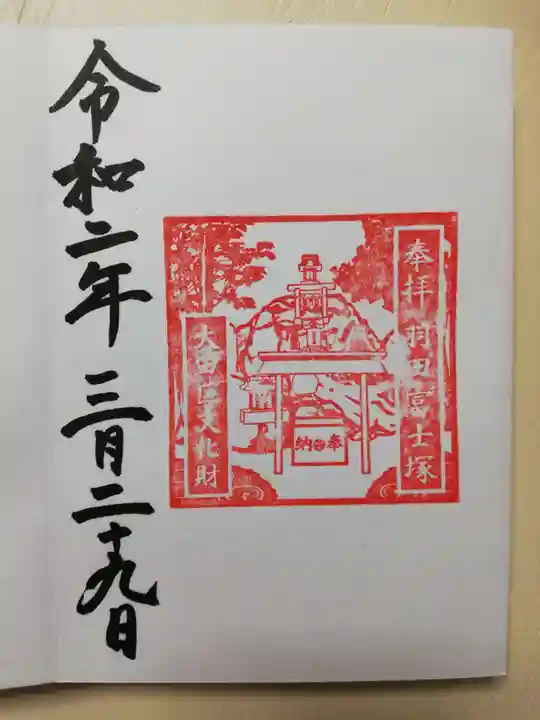 奉拝 羽田富士塚
奉納
大田区文化財
令和二年 三月二十九日